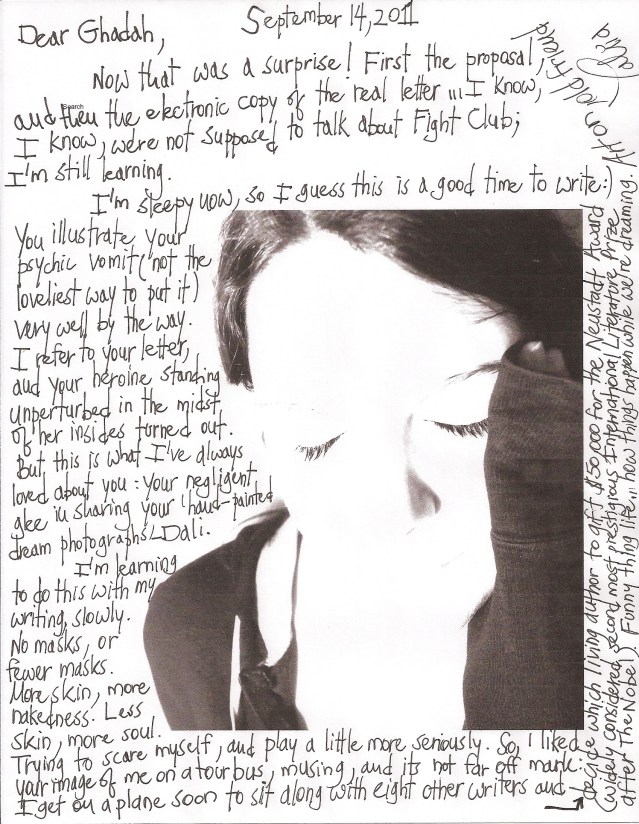 September 14, 2011
Dear Ghadah,
Now that was a surprise! First the proposal,
and then the electronic copy of the real letter... I know,
Search
I know, we're not supposed to talk about Fight Club;
I'm still learning.
I'm sleepy now, so I guess this is a good time to write:)
You illustrate your
psychic vomit (not the
loveliest way to put it)
very well by the way.
I refer to your letter,
and your heroine standing
unperturbed in the midst
of her insides turned out.
But this is what I've always
loved about you: your negligent
glee in sharing your 'hand-painted
dream photographs'- Dali.
I'm learning
to do this with my
writing, slowly.
No masks, or
fewer masks.
More skin, more
nakedness. Less
skin, more soul.
Trying to scare myself, and play a little more seriously. So, I liked
your image of me on a tour bus, musing, and its not far off mark:
I get on a plane soon to sit along with eight other writers and
decide which living author to gift $50,000 for the Neustadt Award
(widely considered second most prestigious International Literature Prize
after The Nobel). Funny thing life... how things happen while we're dreaming.
Art on, old friend